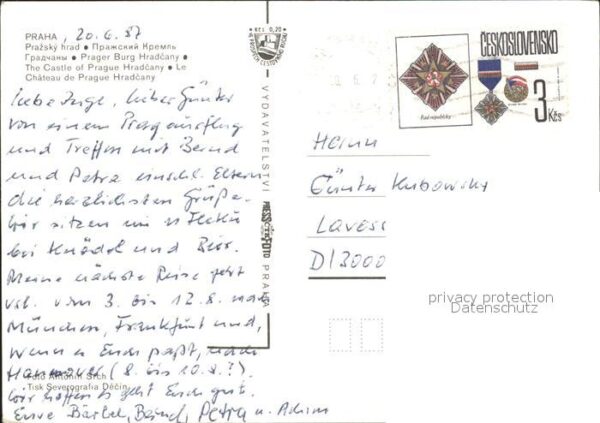 PRAHA, 20.6.87
Pražský hrad • Пражский Кремль
Градчаны • Prager Burg Hradčany •
The Castle of Prague Hradčany • Le
Château de Prague Hradčany
Kčs 0,20
Liebe Inge, lieber Günter
von einem Pragausflug
und Treffen mit Bernd
und Petra einschl. Eltern
die herzlichsten Grüße.
Wir sitzen im U Fleků
bei Knödel und Bier.
Meine nächste Reise geht
vsl. vom 3. bis 12.8. nach
München, Frankfurt und,
wenn es Euch paßt, nach
Hannover (8. bis 10.?)
Wir hoffen es geht Euch gut.
Eure Bärbel, Bernd, Petra u. Achim
Foto Antonín Srch
Tisk Severografia Děčín
VYDAVATELSTVÍ
PRESSFOTO
PRAHA
ČESKOSLOVENSKO
Řád republiky
3 Kčs
Herrn
Günter Kubowsky
Laves
D/3000
privacy protection
Datenschutz